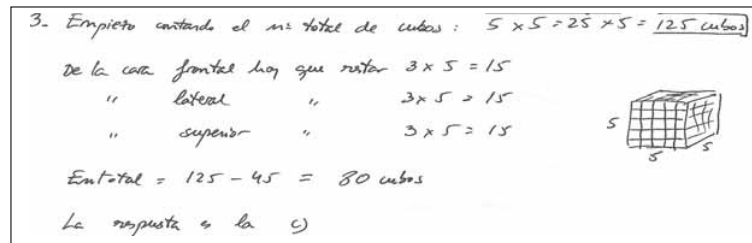 3- Empiezo contando el nº total de cubos : 5 x 5 = 25 x 5 = 125 cubos
De la cara frontal hay que restar 3 x 5 = 15
" lateral " 3 x 5 = 15
" superior " 3 x 5 = 15
5
5 5
En total = 125 - 45 = 80 cubos
La respuesta es la c)